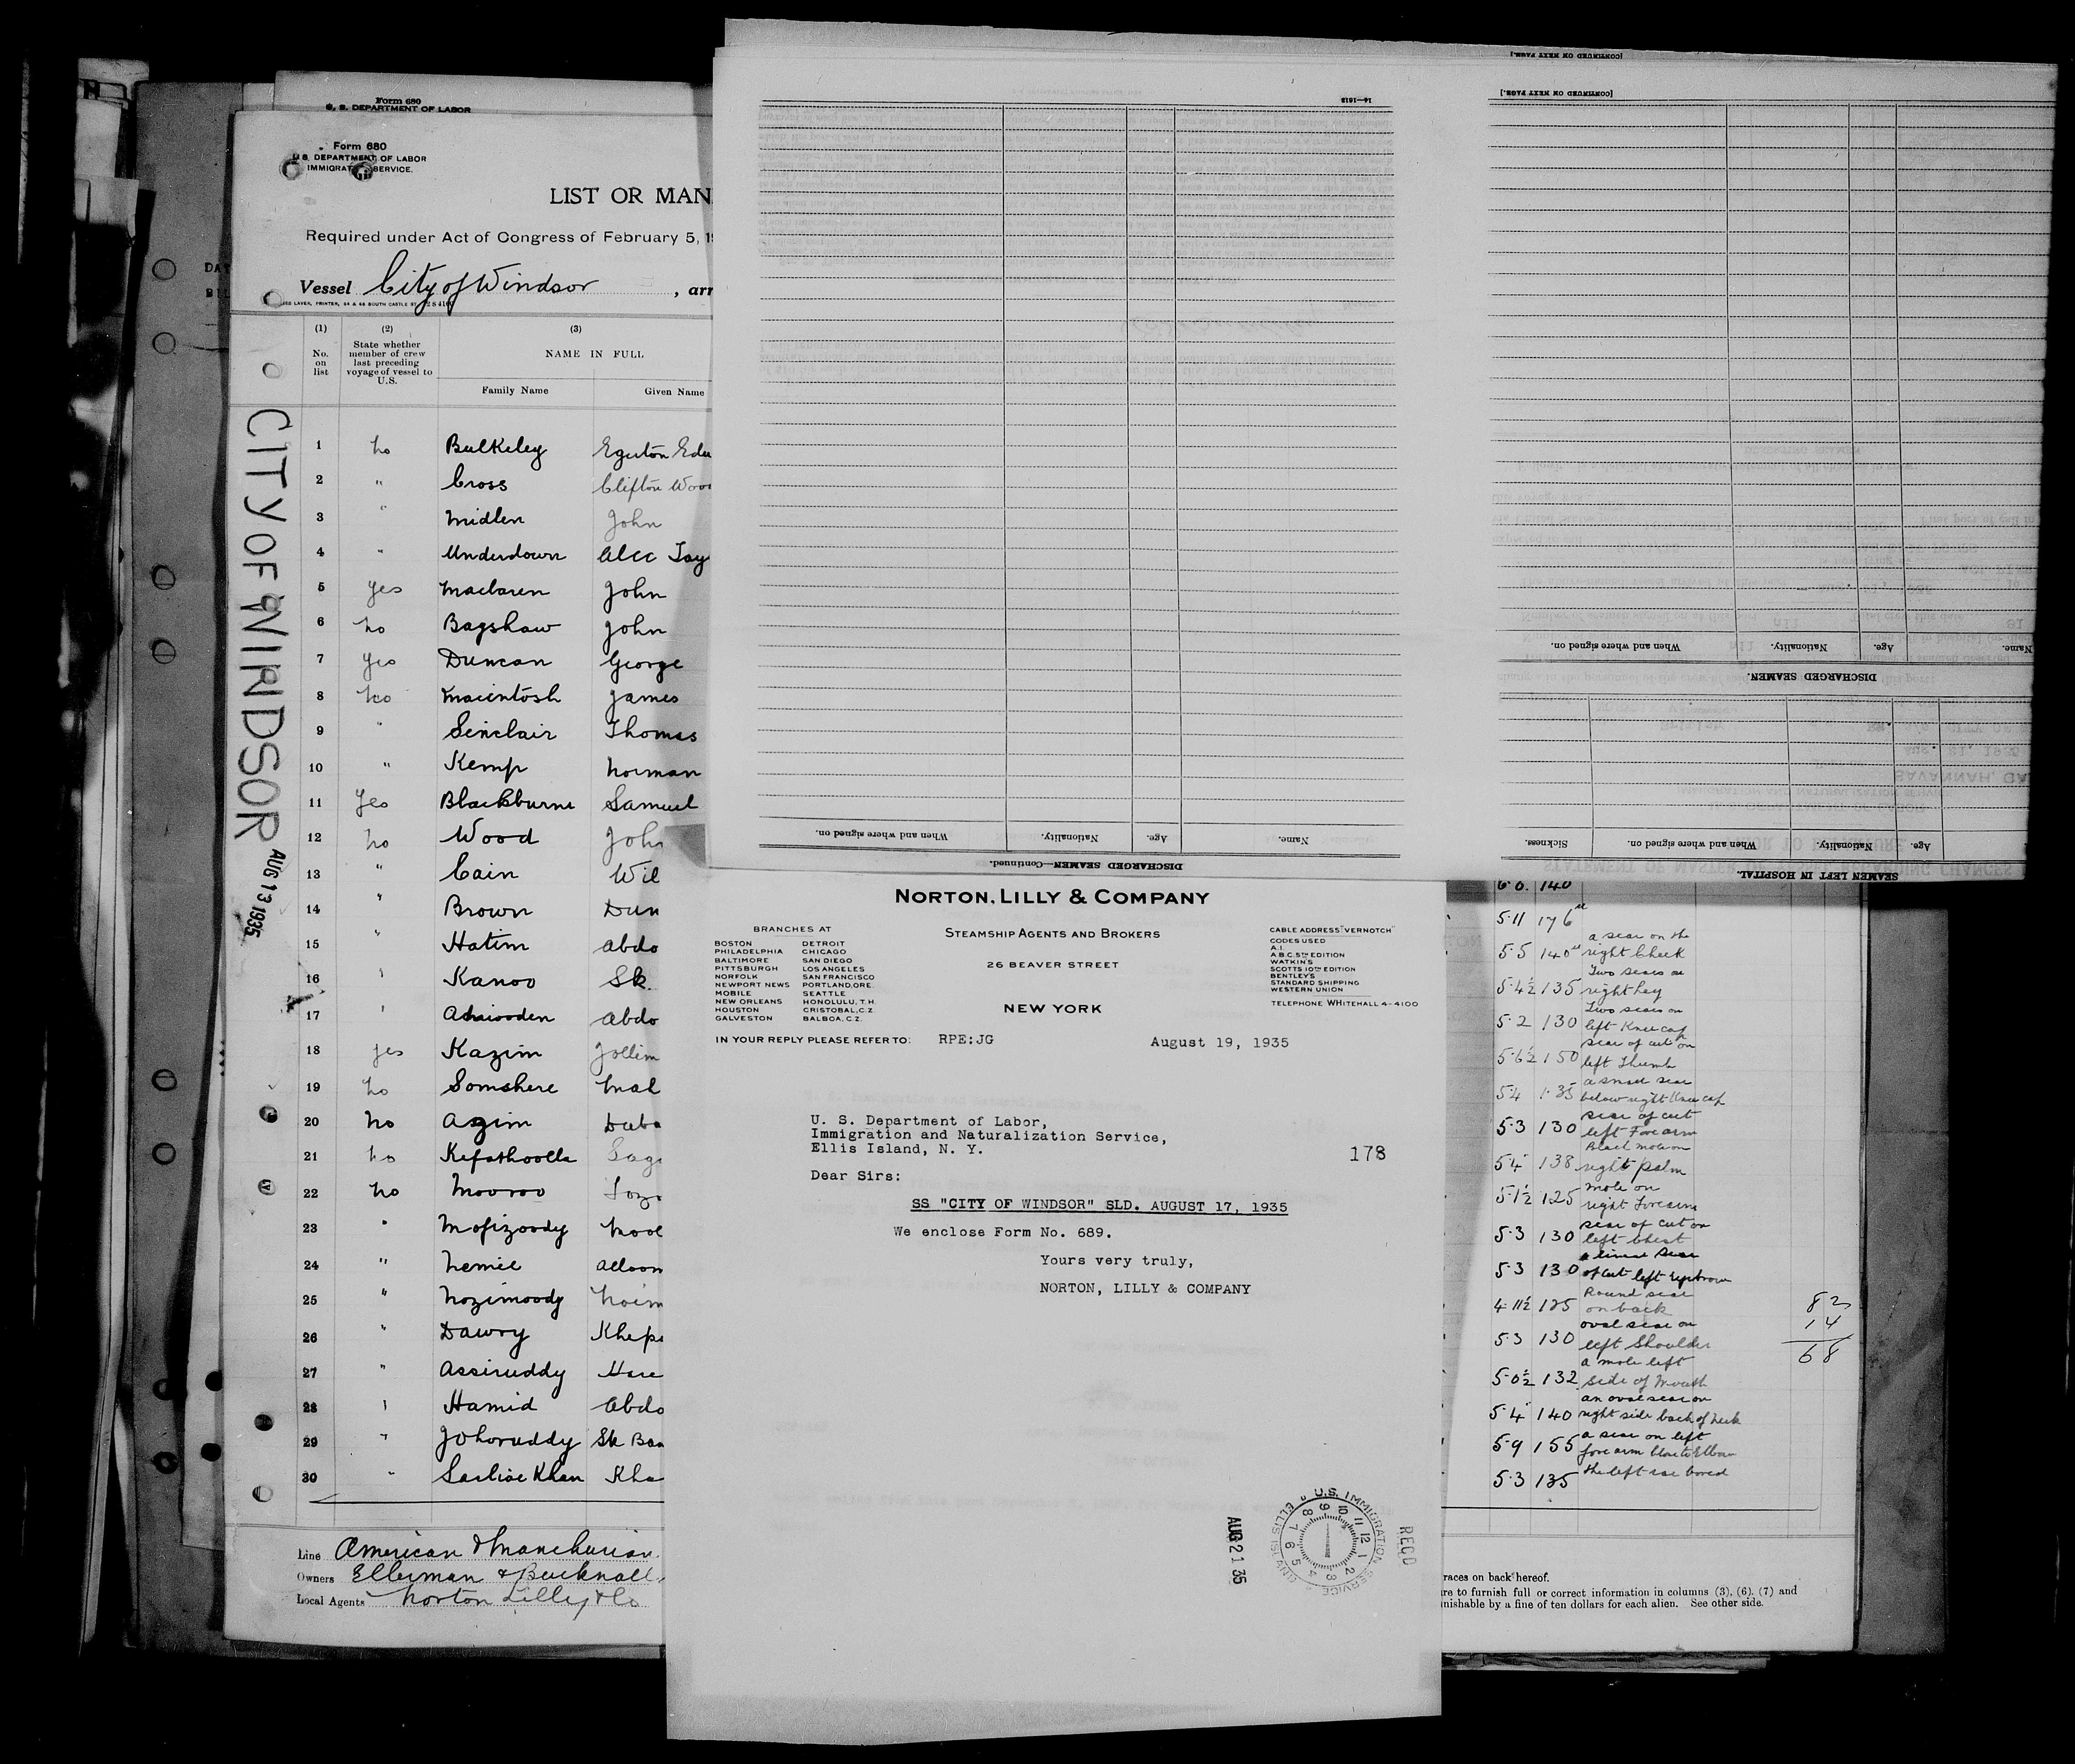 Form 680
U. S. DEPARTMENT OF LABOR
Form 680
U. S. DEPARTMENT OF LABOR
IMMIGRATION SERVICE.
LIST OR MAN
Required under Act of Congress of February 5, 19
Vessel City of Windsor , arr
(1) (2) (3)
No. on list
State whether member of crew last preceding voyage of vessel to U.S.
NAME IN FULL
Family Name Given Name
CITY OF WINDSOR
AUG 13 1935
1 no Bulkeley Egerton Edw
2 " Cross Clifton Woo
3 " Midlen John
4 " Underdown Alec Tay
5 yes Maclaren John
6 no Bagshaw John
7 yes Duncan George
8 no Macintosh James
9 " Sinclair Thomas
10 " Kemp Norman
11 Yes Blackburne Samuel
12 no Wood John
13 " Cain Wil
14 " Brown Dun
15 " Hatim Abdo
16 " Kanoo Sk.
17 " Abdo
18 yes Kazim
19 no Somshere
20 no Azim
21 no Kefathoolla
22 no Mooroo
23 " Mofizoody
24 " Nemie
25 " Nozimoody
26 " Dawry
27 " Assiruddy
28 " Hamid Abdo
29 " Johoruddy Sk
30 " Khan Kha
Line American & Manchurian
Owners Ellerman & Bucknall
Local Agents Norton Lilly & Co
[CONTINUED ON NEXT PAGE.]
[CONTINUED ON NEXT PAGE.]
14—1618
When and where signed on. Nationality. Age. Name.
DISCHARGED SEAMEN—Continued.
When and where signed on. Nationality. Age. Name.
DISCHARGED SEAMEN.
Sickness. When and where signed on. Nationality. Age.
SEAMEN LEFT IN HOSPITAL.
NORTON, LILLY & COMPANY
STEAMSHIP AGENTS AND BROKERS
26 BEAVER STREET
NEW YORK
BRANCHES AT
BOSTON DETROIT
PHILADELPHIA CHICAGO
BALTIMORE SAN DIEGO
PITTSBURGH LOS ANGELES
NORFOLK SAN FRANCISCO
NEWPORT NEWS PORTLAND, ORE.
MOBILE SEATTLE
NEW ORLEANS HONOLULU, T.H.
HOUSTON CRISTOBAL, C.Z.
GALVESTON BALBOA, C.Z.
CABLE ADDRESS "VERNOTCH"
CODES USED
A.I.
A.B.C. 5TH EDITION
WATKIN'S
SCOTTS 10TH EDITION
BENTLEY'S
STANDARD SHIPPING
WESTERN UNION
TELEPHONE WHITEHALL 4-4100
IN YOUR REPLY PLEASE REFER TO: RPE:JG
August 19, 1935
U. S. Department of Labor,
Immigration and Naturalization Service,
Ellis Island, N. Y.
178
Dear Sirs:
SS "CITY OF WINDSOR" SLD. AUGUST 17, 1935
We enclose Form No. 689.
Yours very truly,
NORTON, LILLY & COMPANY
AUG 21 35
U.S. IMMIGRATION SERVICE ELLIS ISLAND
REC'D
6·0. 140
5·11 176
5·5 140 a scar on the right Cheek
5·4½ 135 Two scars on right Leg
5·2 130 Two scars on left Knee cap
5·6½ 150 scar of cut on left Thumb
5·4 135 a small scar below right Knee cap
5·3 130 scar of cut left Forearm
5·4 138 Black mole on right palm
5·1½ 125 mole on right Forearm
5·3 130 scar of cut on left Chest
5·3 130 a linear scar of cut left Eyebrow
4·11½ 125 Round scar on back
5·3 130 oval scar on left Shoulder
5·0½ 132 a mole left side of Mouth
5·4 140 an oval scar on right side back of neck
5·9 155 a scar on left forearm close to Elbow
5·3 135 the left ear bored
82
14
68
races on back hereof.
re to furnish full or correct information in columns (3), (6), (7) and
nishable by a fine of ten dollars for each alien. See other side.